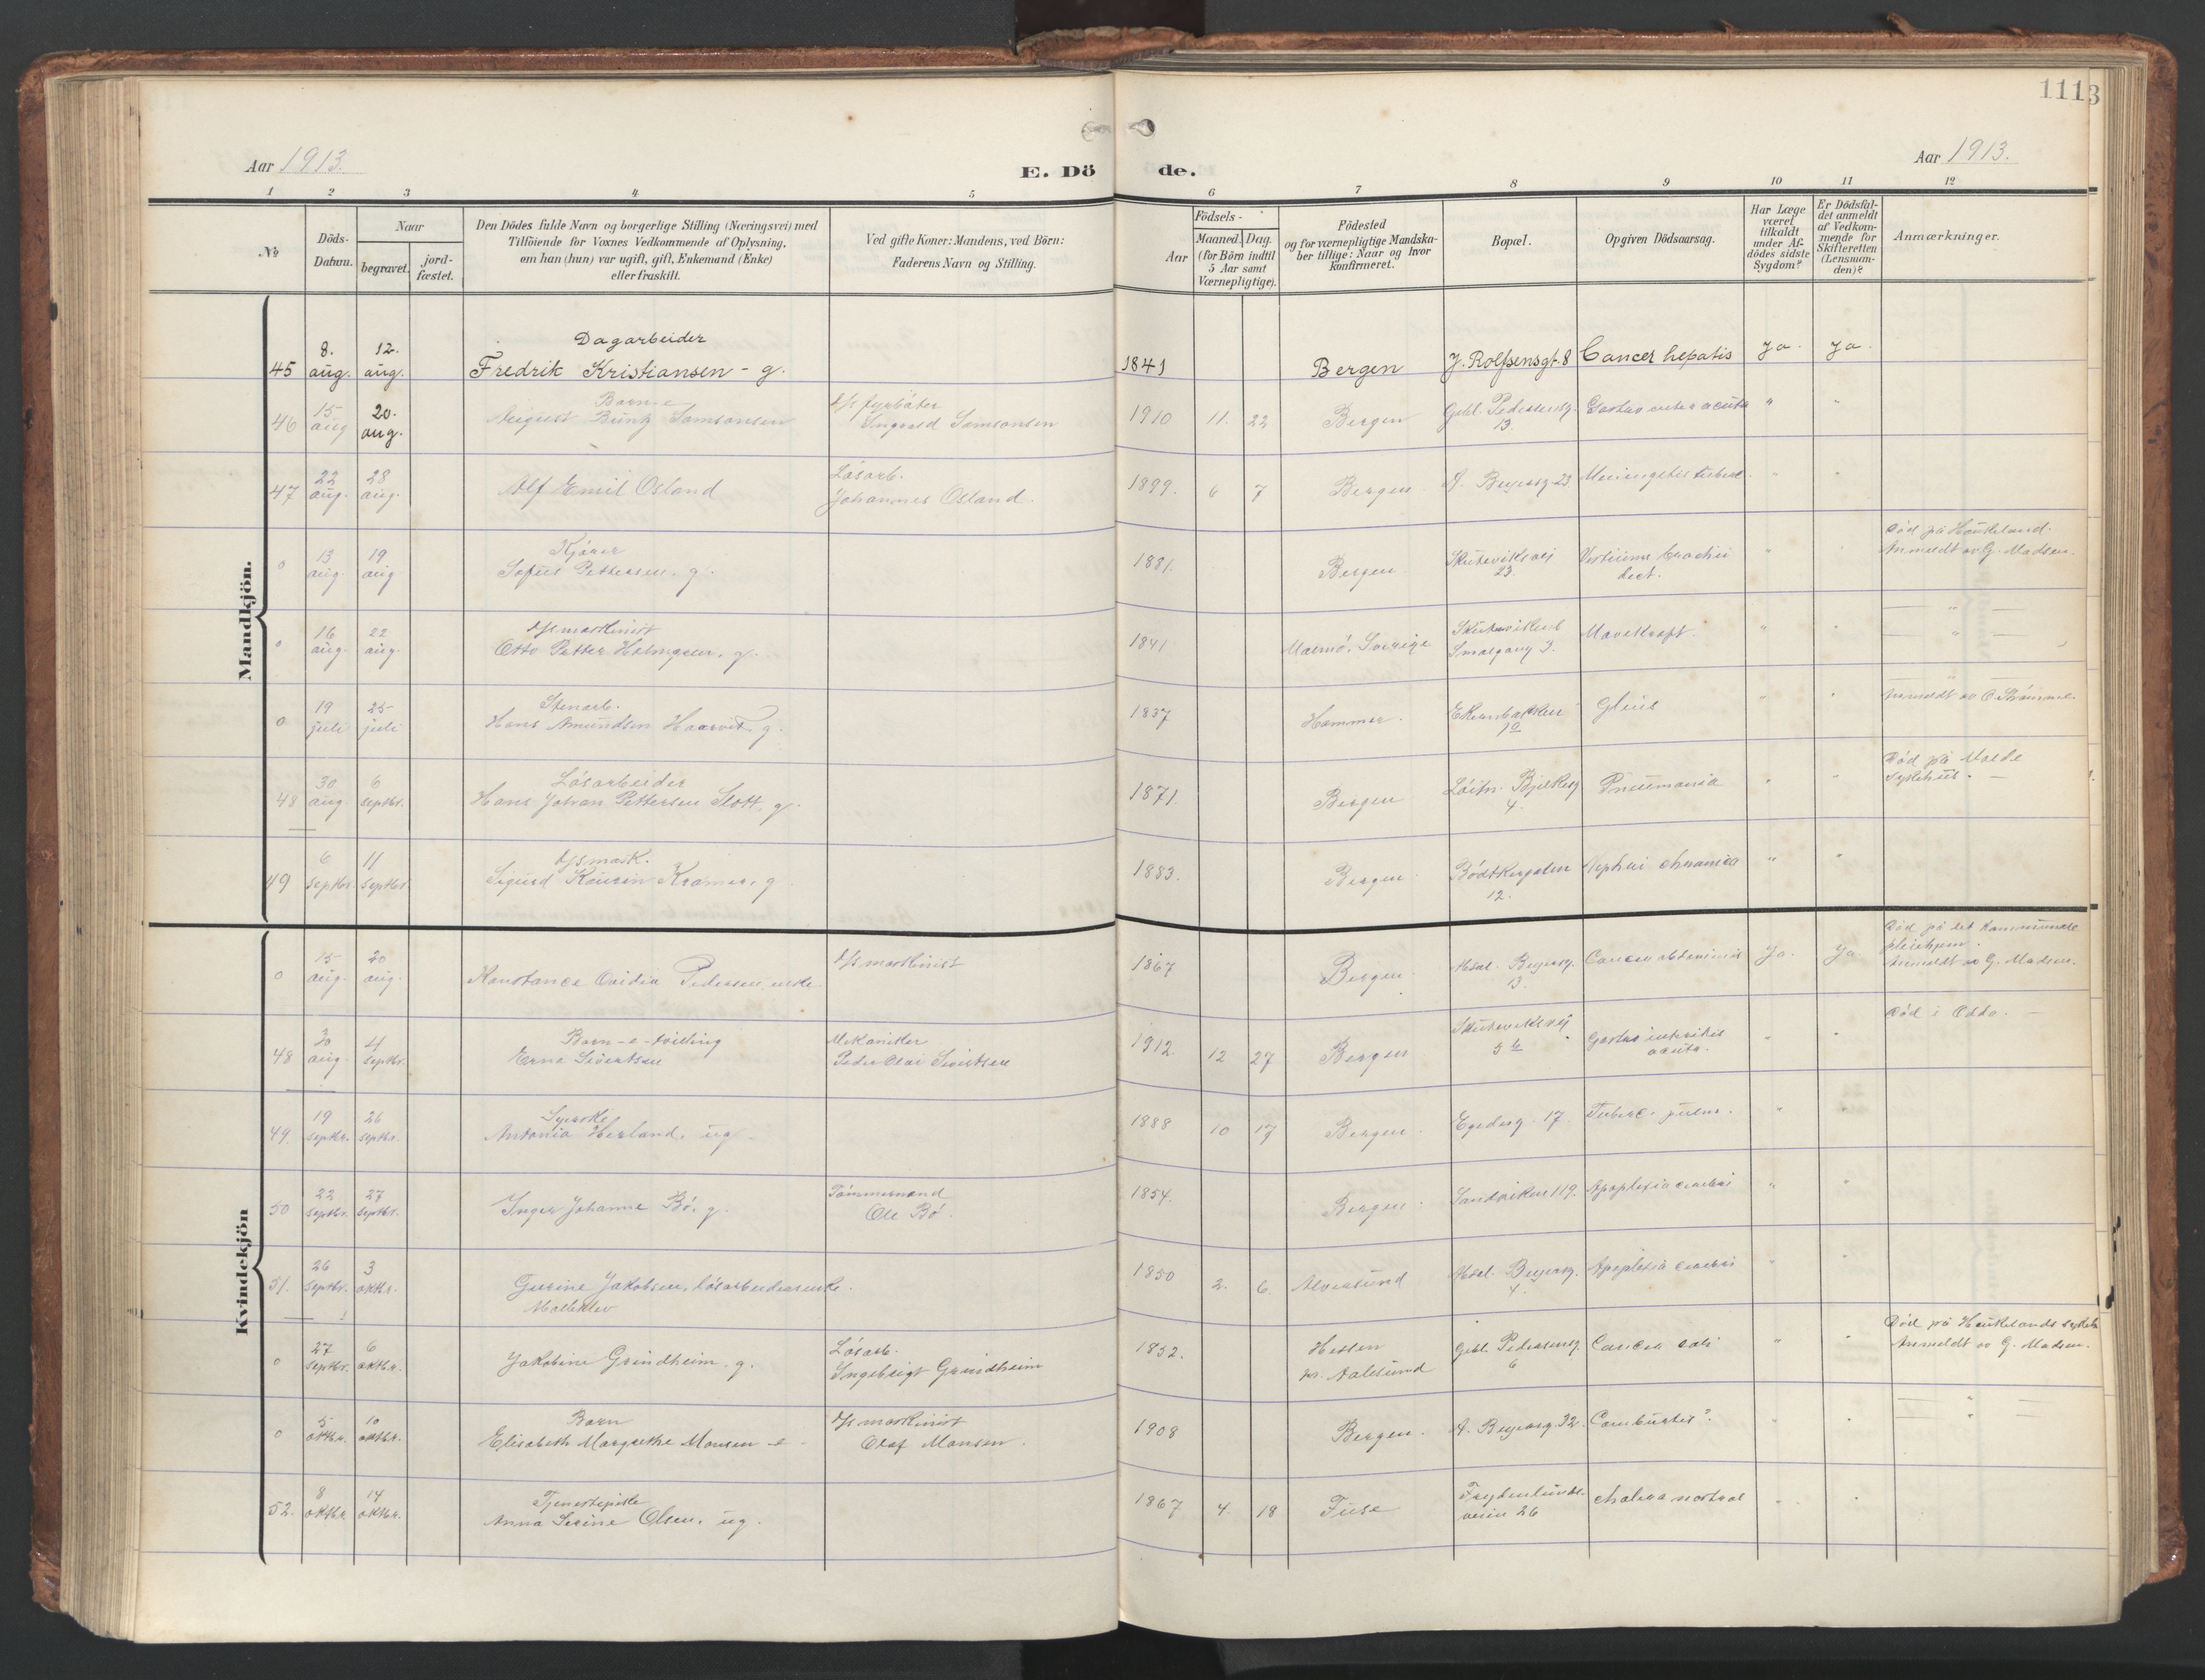 1113
Aar 1913.
E. Dö de.
Aar 1913.
1 2 3 4 5 6 7 8 9 10 11 12
№
Döds-Datum.
Naar
begravet.
jord-fæstet.
Den Dödes fulde Navn og borgerlige Stilling (Næringsvei) med
Tilföiende for Voxnes Vedkommende af Oplysning,
om han (hun) var ugift, gift, Enkemand (Enke)
eller fraskilt.
Ved gifte Koner: Mandens, ved Börn:
Faderens Navn og Stilling.
Födsels-
Aar
Maaned. Dag.
(for Börn indtil
5 Aar samt
Værnepligtige).
Födested
og for værnepligtige Mandska-
ber tillige: Naar og hvor
konfirmeret.
Bopæl.
Opgiven Dödsaarsag.
Har Læge
været
tilkaldt
under Af-
dödes sidste
Sygdom?
Er Dödsfal-
det anmeldt
af Vedkom-
mende for
Skifteretten
(Lensman-
den)?
Anmærkninger.
Mandkjön.
8. 12. Dagarbeider
45 aug. aug. Fredrik Kristiansen - g. 1841 Bergen J. Rolfsensgt. 8 Cancer hepatis Ja. Ja.
15 20. Barn - e
46 aug aug. August Samsonsen Ingvald Samsonsen 1910 11. 22 Bergen Gabl. Pedersensg. 13. acuta " "
22 28 Løsarb.
47 aug. aug. Alf Emil Osland Johannes Osland. 1899. 6 7 Bergen A. Beyersg. 23. Meningitis tuberc. " "
13 19 Kjører Død på Haukeland.
0 aug. aug Sofus Pettersen. g. 1881. Bergen. Skuteviksvej 23. Anmeldt av G. Madsen.
16 22 d/s maskinist — " —
0 aug. aug. Otto Petter Holmgren. g. 1841 Malmø, Sverige Smalgang 3. Mavekræft. " — " —
19 25 Stenarb.
0 juli juli Hans Amundsen g. 1837 Hammer. " " Anmeldt av
30 6 Løsarbeider Død på
48 aug. septbr. Hans Johan Pettersen Slott. g. 1871. Bergen Løitn. Bjelkesg 4. Pneumonia " " Sykehus. —
6 11 d/s mask.
49 septbr. septbr. Sigurd Kramer. g. 1883. Bergen. Bødtkergaten 12. " "
Kvindekjön
15 20 d/s maskinist Død på det kommunale pleiehjem.
0 aug. aug. Konstance Ovidia Pedersen, enke. 1867 Bergen Absal. Beyersg. 13. Cancer Ja. Ja. Anmeldt av G. Madsen.
30 4 Barn - e - tvilling Mekaniker Død i Odda. —
48 aug. septbr. Erna Sivertsen Peder Olai Sivertsen 1912. 12 27 Bergen Skuteviksvej 5 b acuta. " "
19 26 Syerske
49. septbr. septbr. Antonia Herland. ug. 1888 10 17 Bergen. Egedesg. 17. Tuberc. pulm. " "
22 27 Tømmermand
50 septbr. septbr. Inger Johanne Bø. g. Ole Bø. 1854. Bergen. Sandviken 119. Apoplexia cerebri " "
26 3
51. septbr. oktbr. Gurine Jakobsen, løsarbeidersenke. 1850 2. 6. Alversund Absal. Beyersg. 4. Apoplexia cerebri " "
27 6 Løsarb. Død på Haukelands sykeh.
0 septbr. oktbr. Jakobine Grindheim. g. Ingebrigt Grindheim 1852. Hessen pr. Aalesund Gabl. Pedersensg. 6 Cancer coli " " Anmeldt av G. Madsen.
5 10 Barn d/s maskinist — " —
0 oktbr. oktbr. Elisabeth Margrethe Monsen - e - Olaf Monsen. 1908 Bergen. A. Beyersg. 32. Combustio? " " — " —
8 14 Tjenestepike
52. oktbr. oktbr. Anna Serine Olsen. ug. 1867 4. 18 Fuse Frydenlunds-veien 26 cholera nostras " "